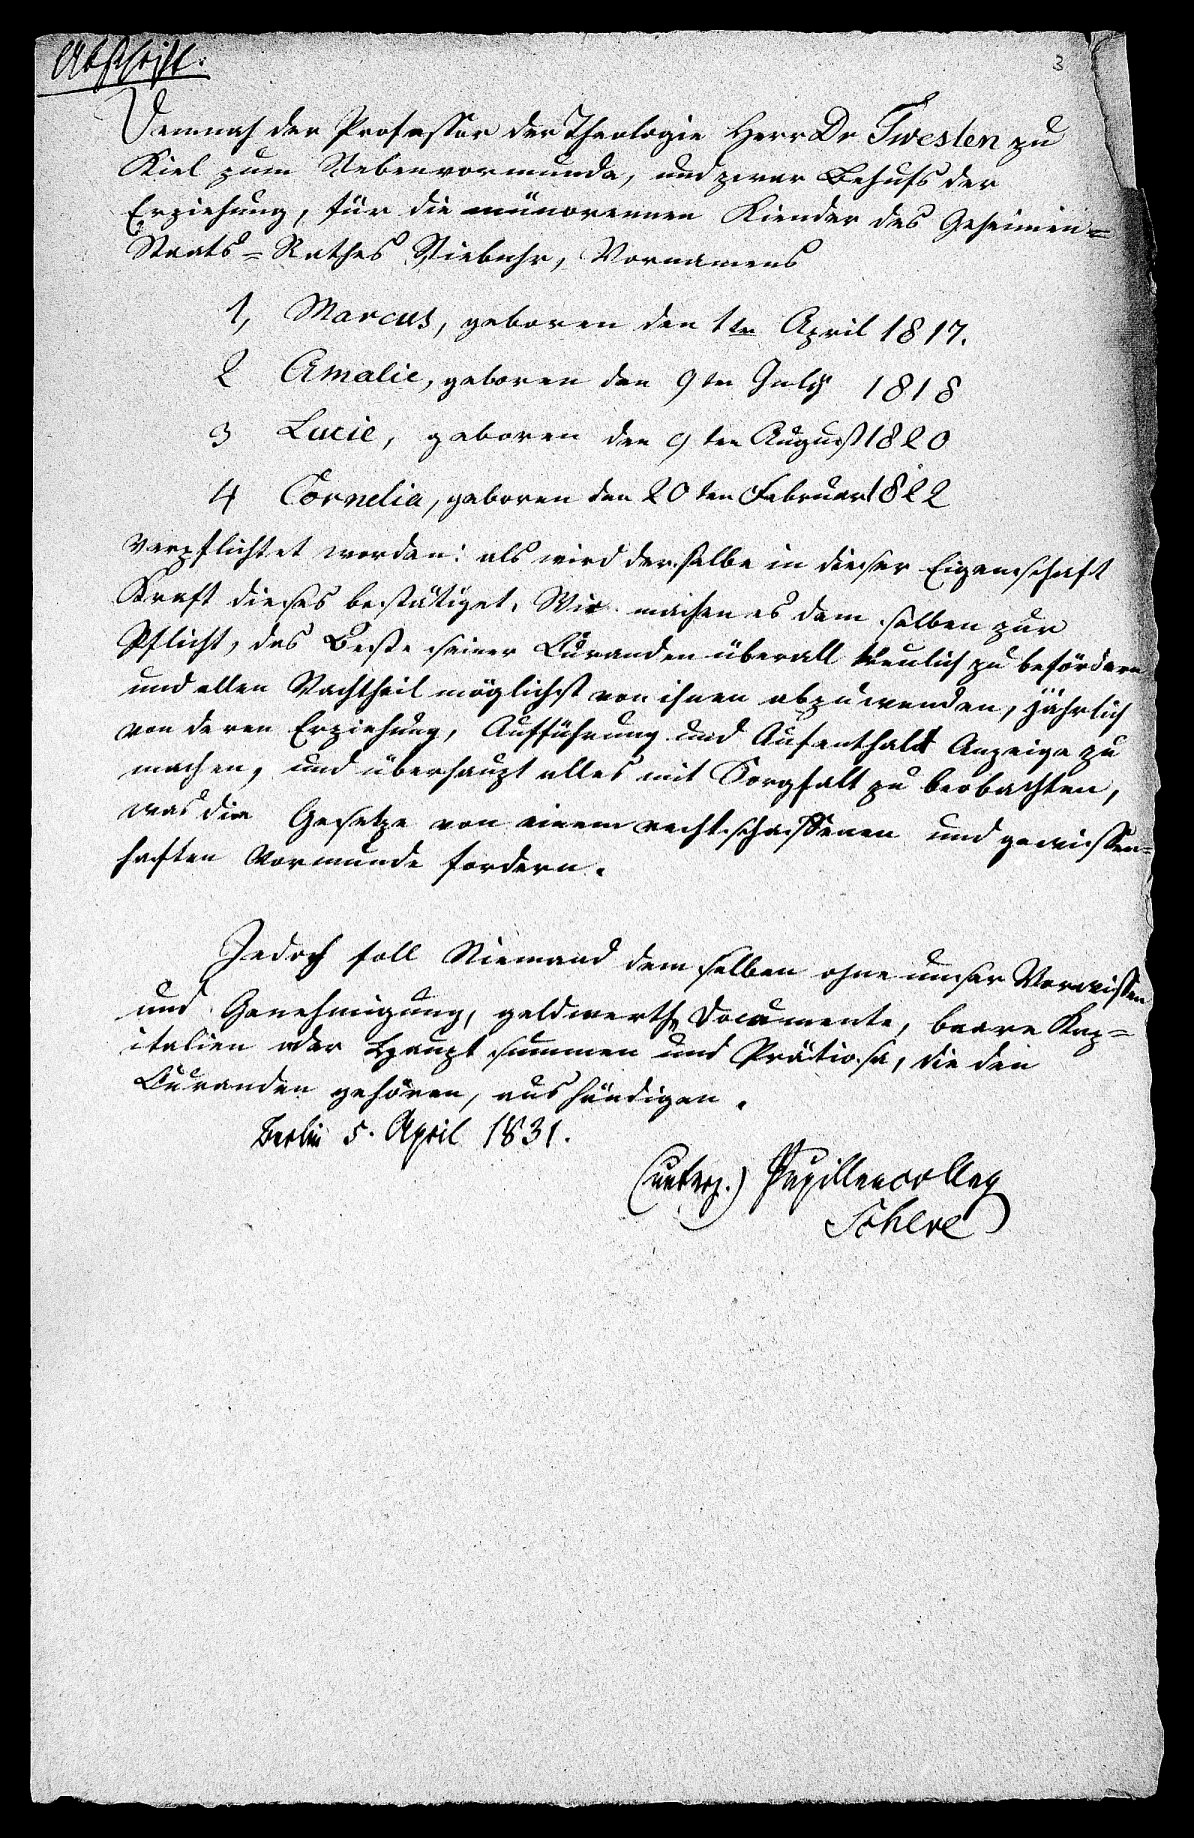 Abschrift.
3
Demnach der Professor der Theologie Herr Dr Twesten zu
Kiel zum Nebenvormunde, und zwar Behufs der
Erziehung, für die minorennen Kinder des Geheimen=
Staats=Rathes Niebuhr, Vornamens
1, Marcus, geboren den 1ten April 1817.
2 Amalie, geboren den 9ten July 1818
3 Lucie, geboren den 9ten August 1820
4 Cornelia, geboren den 20ten Februar 1822
verpflichtet worden: als wird derselbe in dieser Eigenschaft
Kraft dieses bestätiget. Wir machen es dem selben zur
Pflicht, das Beste seiner Curanden überall treulich zu befördern
und allen Nachtheil möglichst von ihnen abzuwenden, jährlich
von deren Erziehung, Aufführung und Aufenthalt Anzeige zu
machen, und überhaupt alles mit Sorgfalt zu beobachten,
was die Gesetze von einem rechtschaffenen und gewissen=
haften Vormunde fordern.
Jedoch soll Niemand dem selben ohne unser Vorwissen
und Genehmigung, geldwerthe Documente, baare Kap=
italien oder Haupt summen und Prätiosa, die den
Curanden gehören, aushändigen.
Berlin 5. April 1831.
(unterz.) Pupillencolleg